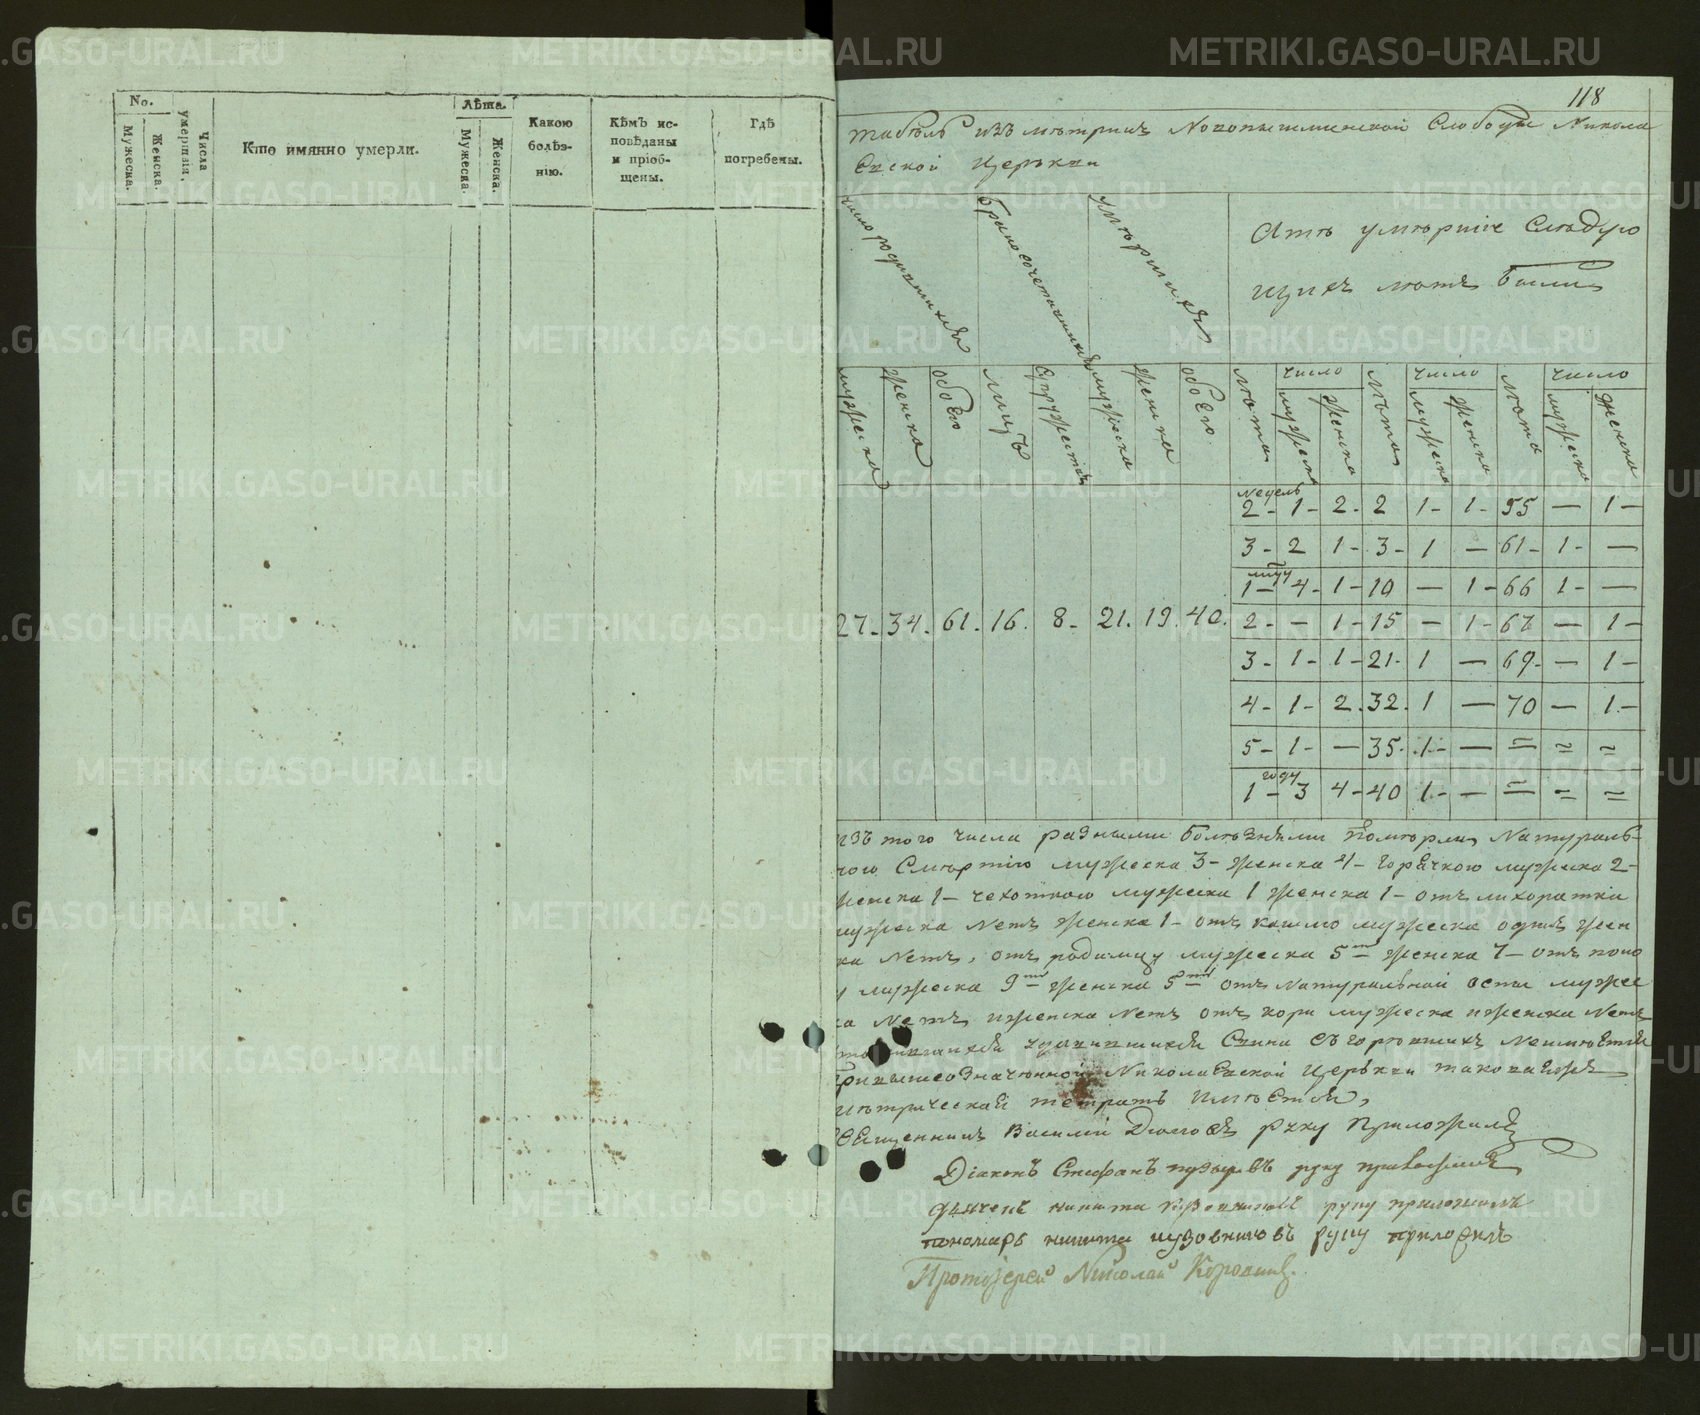 No.
Мужеска.
Женска.
Числа умершія.
Кто имянно умерли.
Лѣта.
Мужеска.
Женска.
Какою болѣз-
нію.
Кѣмъ ис-
повѣданы
и пріоб-
щены.
Гдѣ
погребены.
118
табѣль изъ мѣтрикъ Новопышминской Слободы Никола
Евской Церькви
число родившихся
Бракосочетавшихся
умѣршихъ
Лѣтъ умѣршіе Слѣдую
щихъ лѣтъ были
мужеска
женска
обоего
лицъ
Супружествъ
мужеска
женска
обоего
лѣта
число
мужеска
женска
лѣта
число
мужеска
женска
лѣта
число
мужеска
женска
недель
2 - 1 - 2 - 2 1 - 1 - 55 — 1 —
3 - 2 1 - 3 - 1 — 61 - 1 - —
1 - 4 - 1 - 10 — 1 - 66 1 - —
27. 34. 61. 16. 8. 21. 19. 40.
2 - — 1 - 15 — 1 - 67 — 1 —
3 - 1 - 1 - 21 - 1 — 69 - — 1 —
4 - 1 - 2. 32. 1 — 70 — 1. —
5 - 1 - — 35 - 1 - — = = =
году
1 - 3 4 - 40 1 - — = = =
изъ того числа разными болѣзнями Помѣрли Натураль-
ною Смѣртію мужеска 3 - женска 4 - горячкою мужеска 2 -
женска 1 - чехоткою мужеска 1 женска 1 - отъ лихоратки
мужеска Нетъ женска 1 - отъ кашлю мужеска одинъ жен
ка Нетъ, отъ родимцу мужеска 5 женска 7 - отъ поно
у мужеска 9 женска 5 отъ Натуральной оспы мужес
ка Нетъ женска Нетъ отъ кори мужеска и женска Нетъ
сгорѣвшихъ Неимѣется
Привышеозначенной Николаевской Церькви таковаяже
мѣтрическая тетрать Имѣется,
Священникъ Василий руку Приложилъ
Діаконъ Стефанъ руку приложилъ
дьячекъ никита руку приложилъ
пономарь никита руку приложилъ
Протоіерей Николай
METRIKI.GASO-URAL.RU